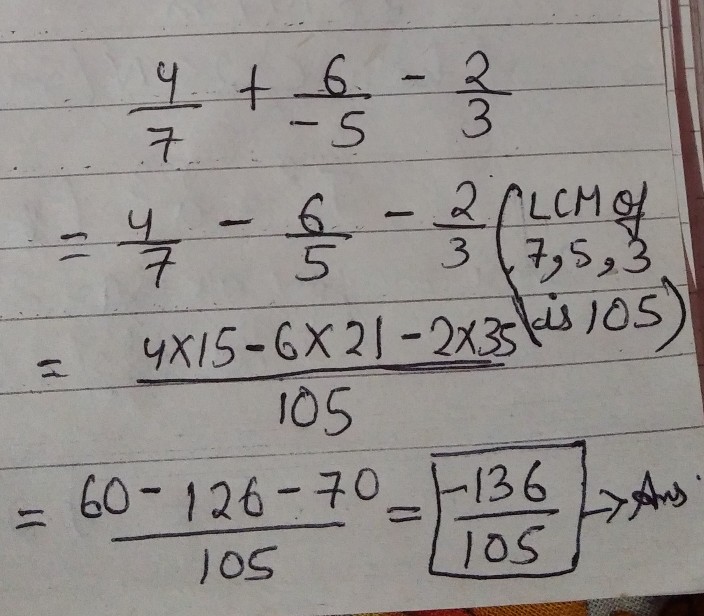 4/7 + 6/-5 - 2/3
= 4/7 - 6/5 - 2/3 (LCM of 7, 5, 3 is 105)
= 4×15-6×21-2×35/105
= 60-126-70/105 = -136/105 → Ans.